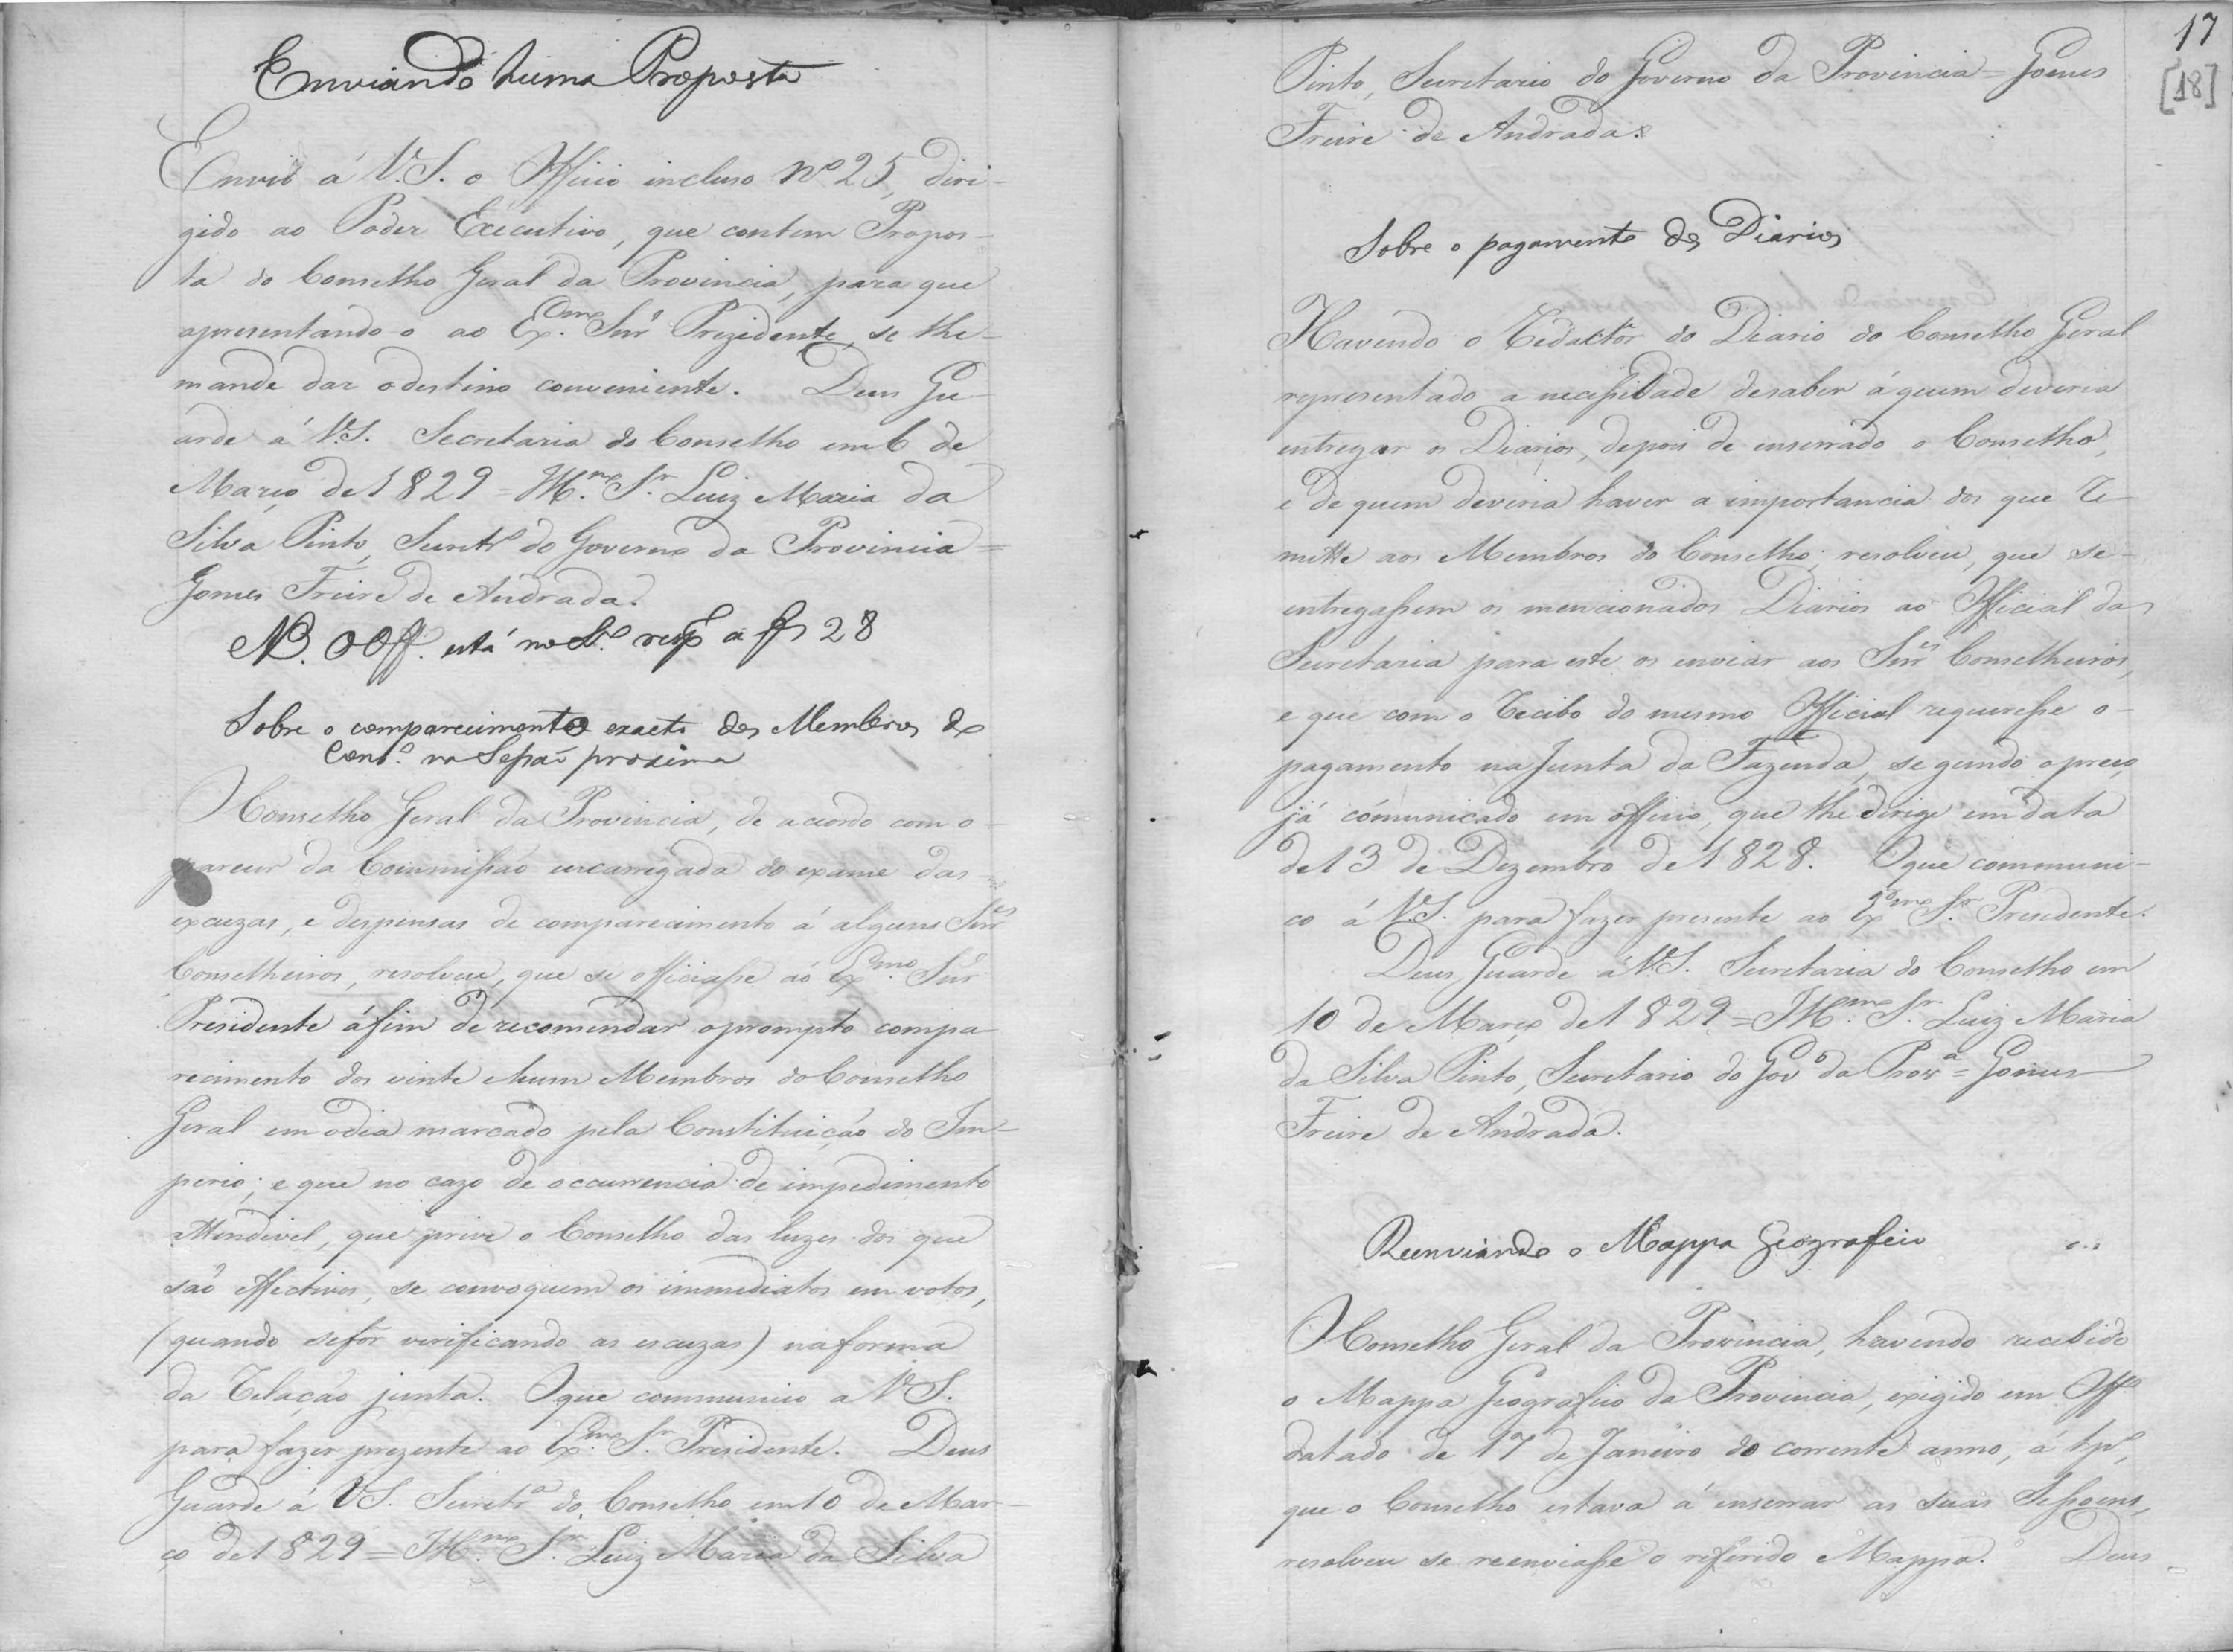 Enviando huma Proposta
Envio á V.S. o Officio incluso Nº 25, diri-
gido ao Poder Executivo, que contem Propos-
ta do Conselho Geral da Provincia, para que
apresentando-o ao Ex.mo Snr. Prezidente, se lhe-
mande dar odestino conveniente. Deus Gu-
arde á V.S. Secretaria do Conselho em 6 de
Março de 1829 = Ill.mo S.r Luiz Maria da
Silva Pinto, Secretr.o do Governo da Provincia =
Gomes Freire de Andrada.
NB. O Off.o está no L.o resp.o a fs 28
Sobre o comparecimento exacto dos Membros do
Cons.o na Seßaõ proxima
O Conselho Geral da Provincia, de acordo com o-
parecer da Commißaõ encarregada do exame das
excuzas, e despensas de comparecimento á alguns Snr.es
Conselheiros, resolveu, que se officiaße aó Ex.mo Snr.
Presidente áfim de recomendar oprompto compa-
recimento dos vinte ehum Membros do Conselho
Geral em odia marcado pela Constituiçaõ do Im-
perio; e que no cazo de occurrencia de impedimento
attendivel, que prive o Conselho das luzes dos que
saõ effectivos, se convoquem os immediatos em votos,
(quando sefor virificando as escuzas) naforma
da Relaçaõ junta. Oque communico a V.S.
para fazer prezente ao Ex.mo S.r Presidente. Deus
Guarde á V.S. Secretr.a do Conselho em 10 de Mar-
ço de 1829 = Ill.mo S.r Luiz Maria da Silva
17
[18]
Pinto, Secretario do Governo da Provincia = Gomes
Freire de Andrada.
Sobre o pagamento dos Diarios
Havendo o Redactor do Diario do Conselho Geral
representado a neceßidade desaber áquem deveria
entregar os Diarios, depois de enserrado o Conselho,
e de quem deveria haver a importancia dos que Re-
mitte aos Membros do Conselho; resolveu, que se-
entregaßem os mencionados Diarios ao Official da
Secretaria para este os enviar aos Snr.es Conselheiros,
e que com o Recibo do mesmo Official requereße o-
pagamento na Junta da Fazenda, segundo opreço
já cómunicado em officio, que lhe dirige em data
de 13 de Dezembro de 1828. Oque communi-
co á V.S. para fazer presente ao Ex.mo S.r Presidente.
Deus Guarde á V.S. Secretaria do Conselho em
10 de Março de 1829 = Ill.mo S.r Luiz Maria
da Silva Pinto, Secretario do Gov.o da Prov.a = Gomes
Freire de Andrada.
Reenviando o Mappa Geografico
O Conselho Geral da Provincia, havendo recebido
o Mappa Geografico da Provincia, exigido em Off.o
datado de 17 de Janeiro do corrente anno, á tp.o,
que o Conselho estava á enserrar as suas Seßoens,
resolveu se reenviaße o referido Mappa. Deus